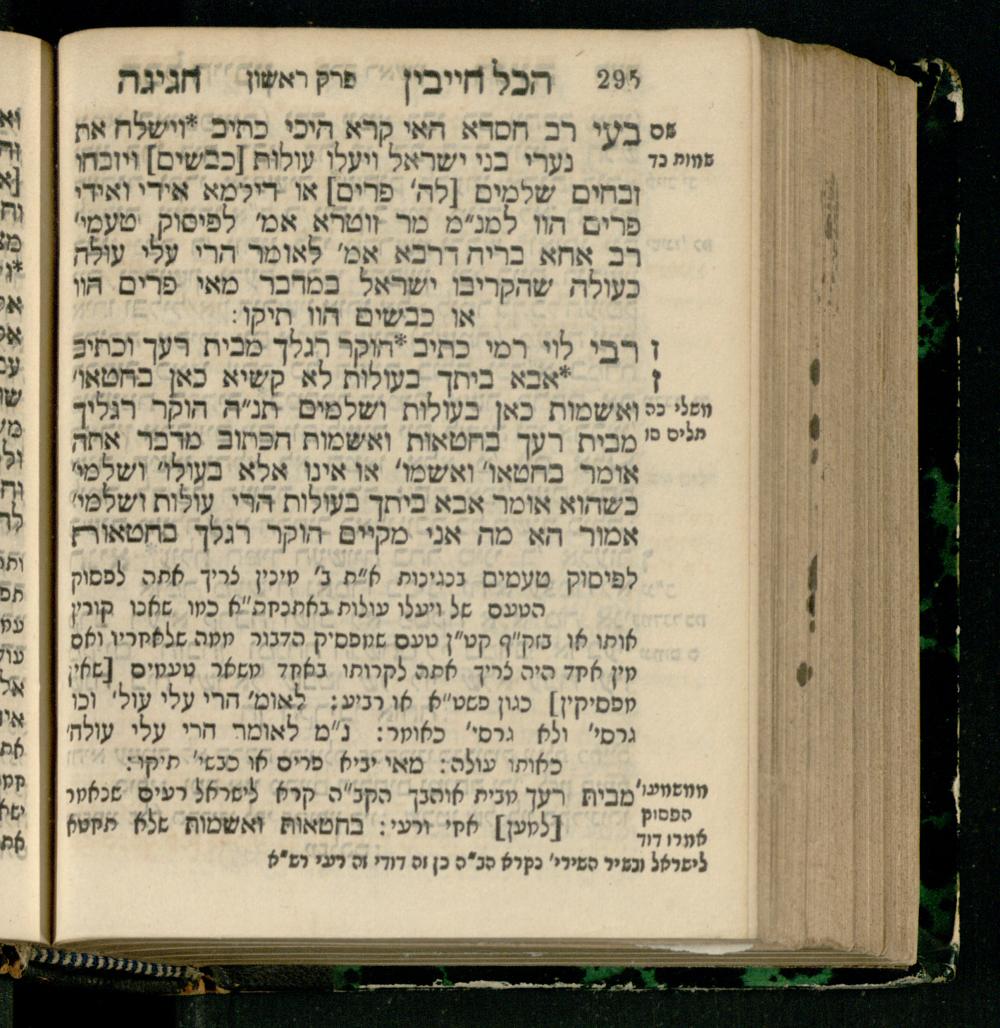 295 הכל חייבין פרק ראשון חגיגה
שם בעי רב חסדא האי קרא היכי כתיב *וישלח את
שמות כד נערי בני ישראל ויעלו עולות [כבשים] ויזבחו
זבחים שלמים [לה' פרים] או דילמא אידי ואידי
פרים הוו למנ"מ מר זוטרא אמ' לפיסוק טעמי'
רב אחא בריה דרבא אמ' לאומר הרי עלי עולה
כעולה שהקריבו ישראל במדבר מאי פרים הוו
או כבשים הוו תיקו:
ז רבי לוי רמי כתיב *הוקר רגלך מבית רעך וכתיב
ז *אבא ביתך בעולות לא קשיא כאן בחטאו'
משלי כה ואשמות כאן בעולות ושלמים תנ"ה הוקר רגליך
תלים סו מבית רעך בחטאות ואשמות הכתוב מדבר אתה
אומר בחטאו' ואשמו' או אינו אלא בעולו' ושלמי'
כשהוא אומר אבא ביתך בעולות הרי עולות ושלמי'
אמור הא מה אני מקיים הוקר רגלך בחטאות
לפיסוק טעמים בנגינות א"ת ב' מינין צריך אתה לפסוק
הטעם של ויעלו עולות באתנחת"א כמו שאנו קורין
אותו או בזק"ף קט"ן טעם שמפסיק הדבור ממה שלאחריו ואם
מין אחד היה צריך אתה לקרותו באחד משאר טעמים [שאין
מפסיקין] כגון פשט"א או רביע: לאומ' הרי עלי עול' וכו
גרסי' ולא גרסי' כאומר: נ"מ לאומר הרי עלי עולה'
כאותו עולה: מאי יביא פרים או כבשי' תיקו:
ממשמעו' מבית רעך מבית אוהבך הקב"ה קרא לישראל רעים שנאמר
הפסוק [למען] אחי ורעי: בחטאות ואשמות שלא תחטא
אמרו דוד
לישראל ובשיר השירי' נקרא הב"ה כן זה דודי זה רעי רש"א